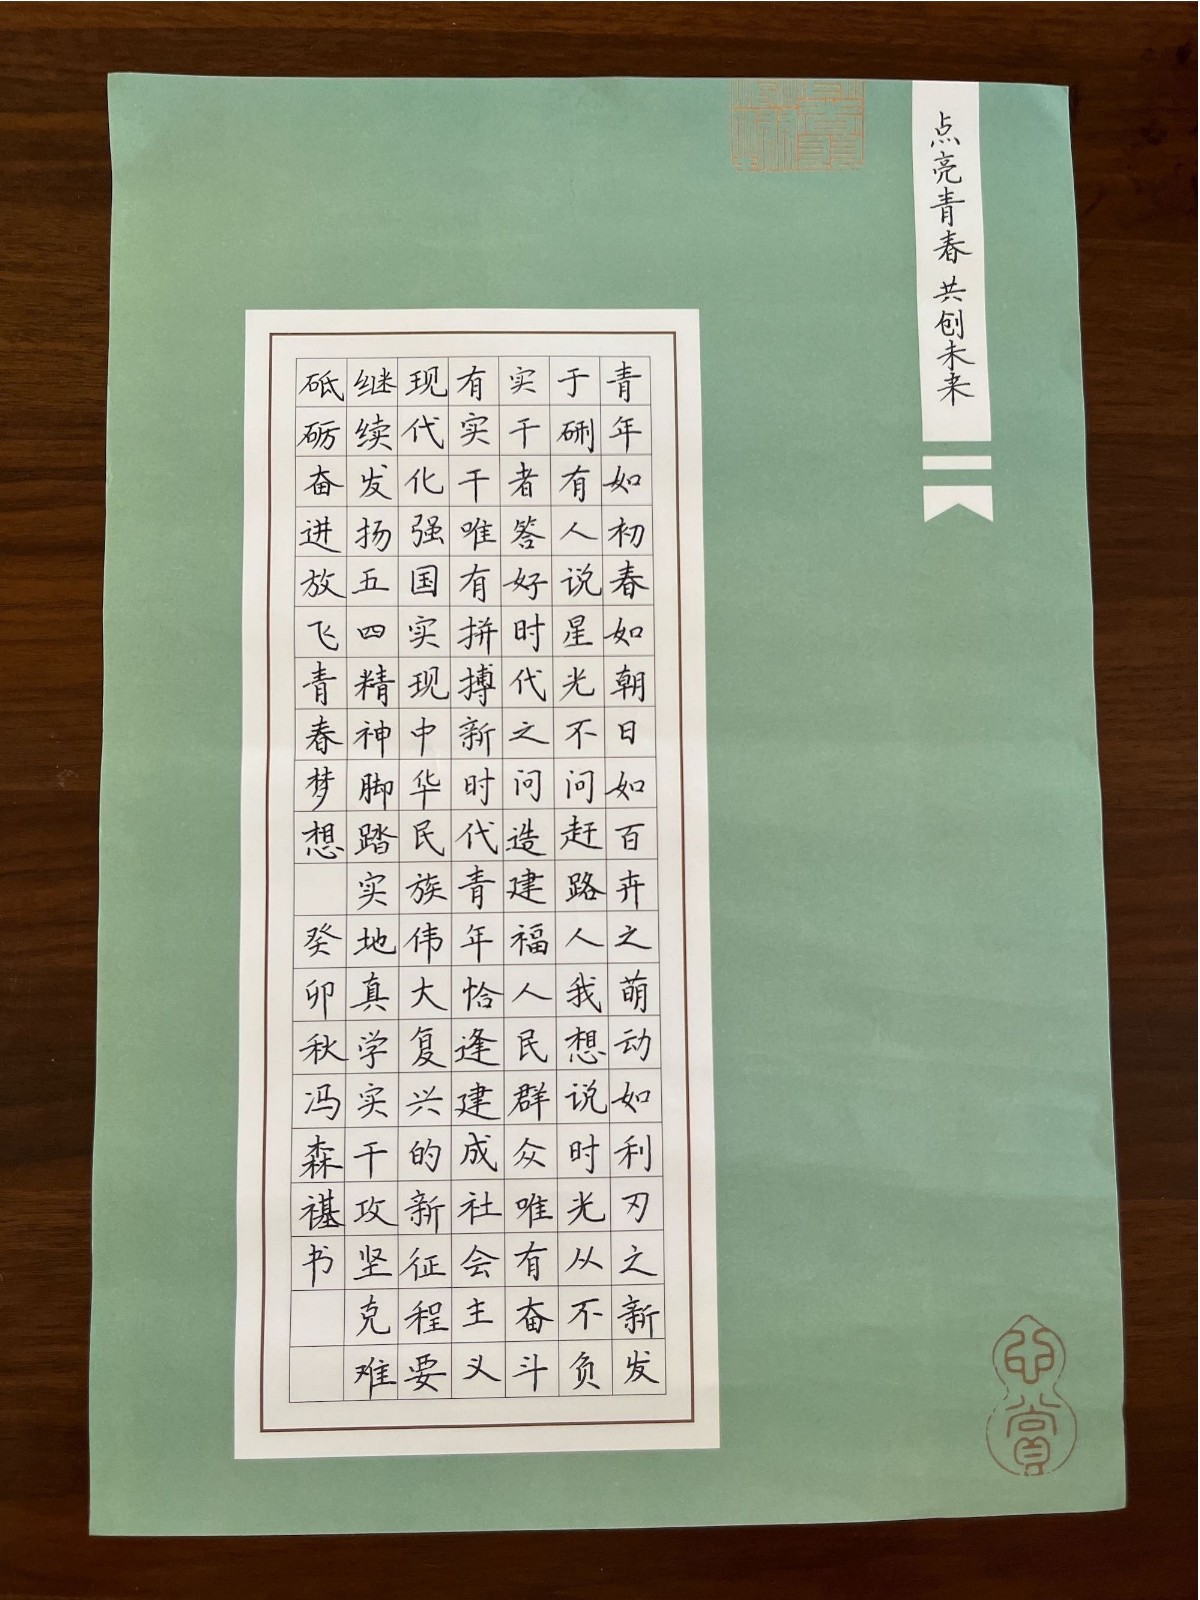 点亮青春 共创未来
青年如初春如朝日如百卉之萌动如利刃之新发
于硎有人说星光不问赶路人我想说时光从不负
实干者答好时代之问造建福人民群众唯有奋斗
有实干唯有拼搏新时代青年恰逢建成社会主义
现代化强国实现中华民族伟大复兴的新征程要
继续发扬五四精神脚踏实地真学实干攻坚克难
砥砺奋进放飞青春梦想 癸卯秋冯森禥书